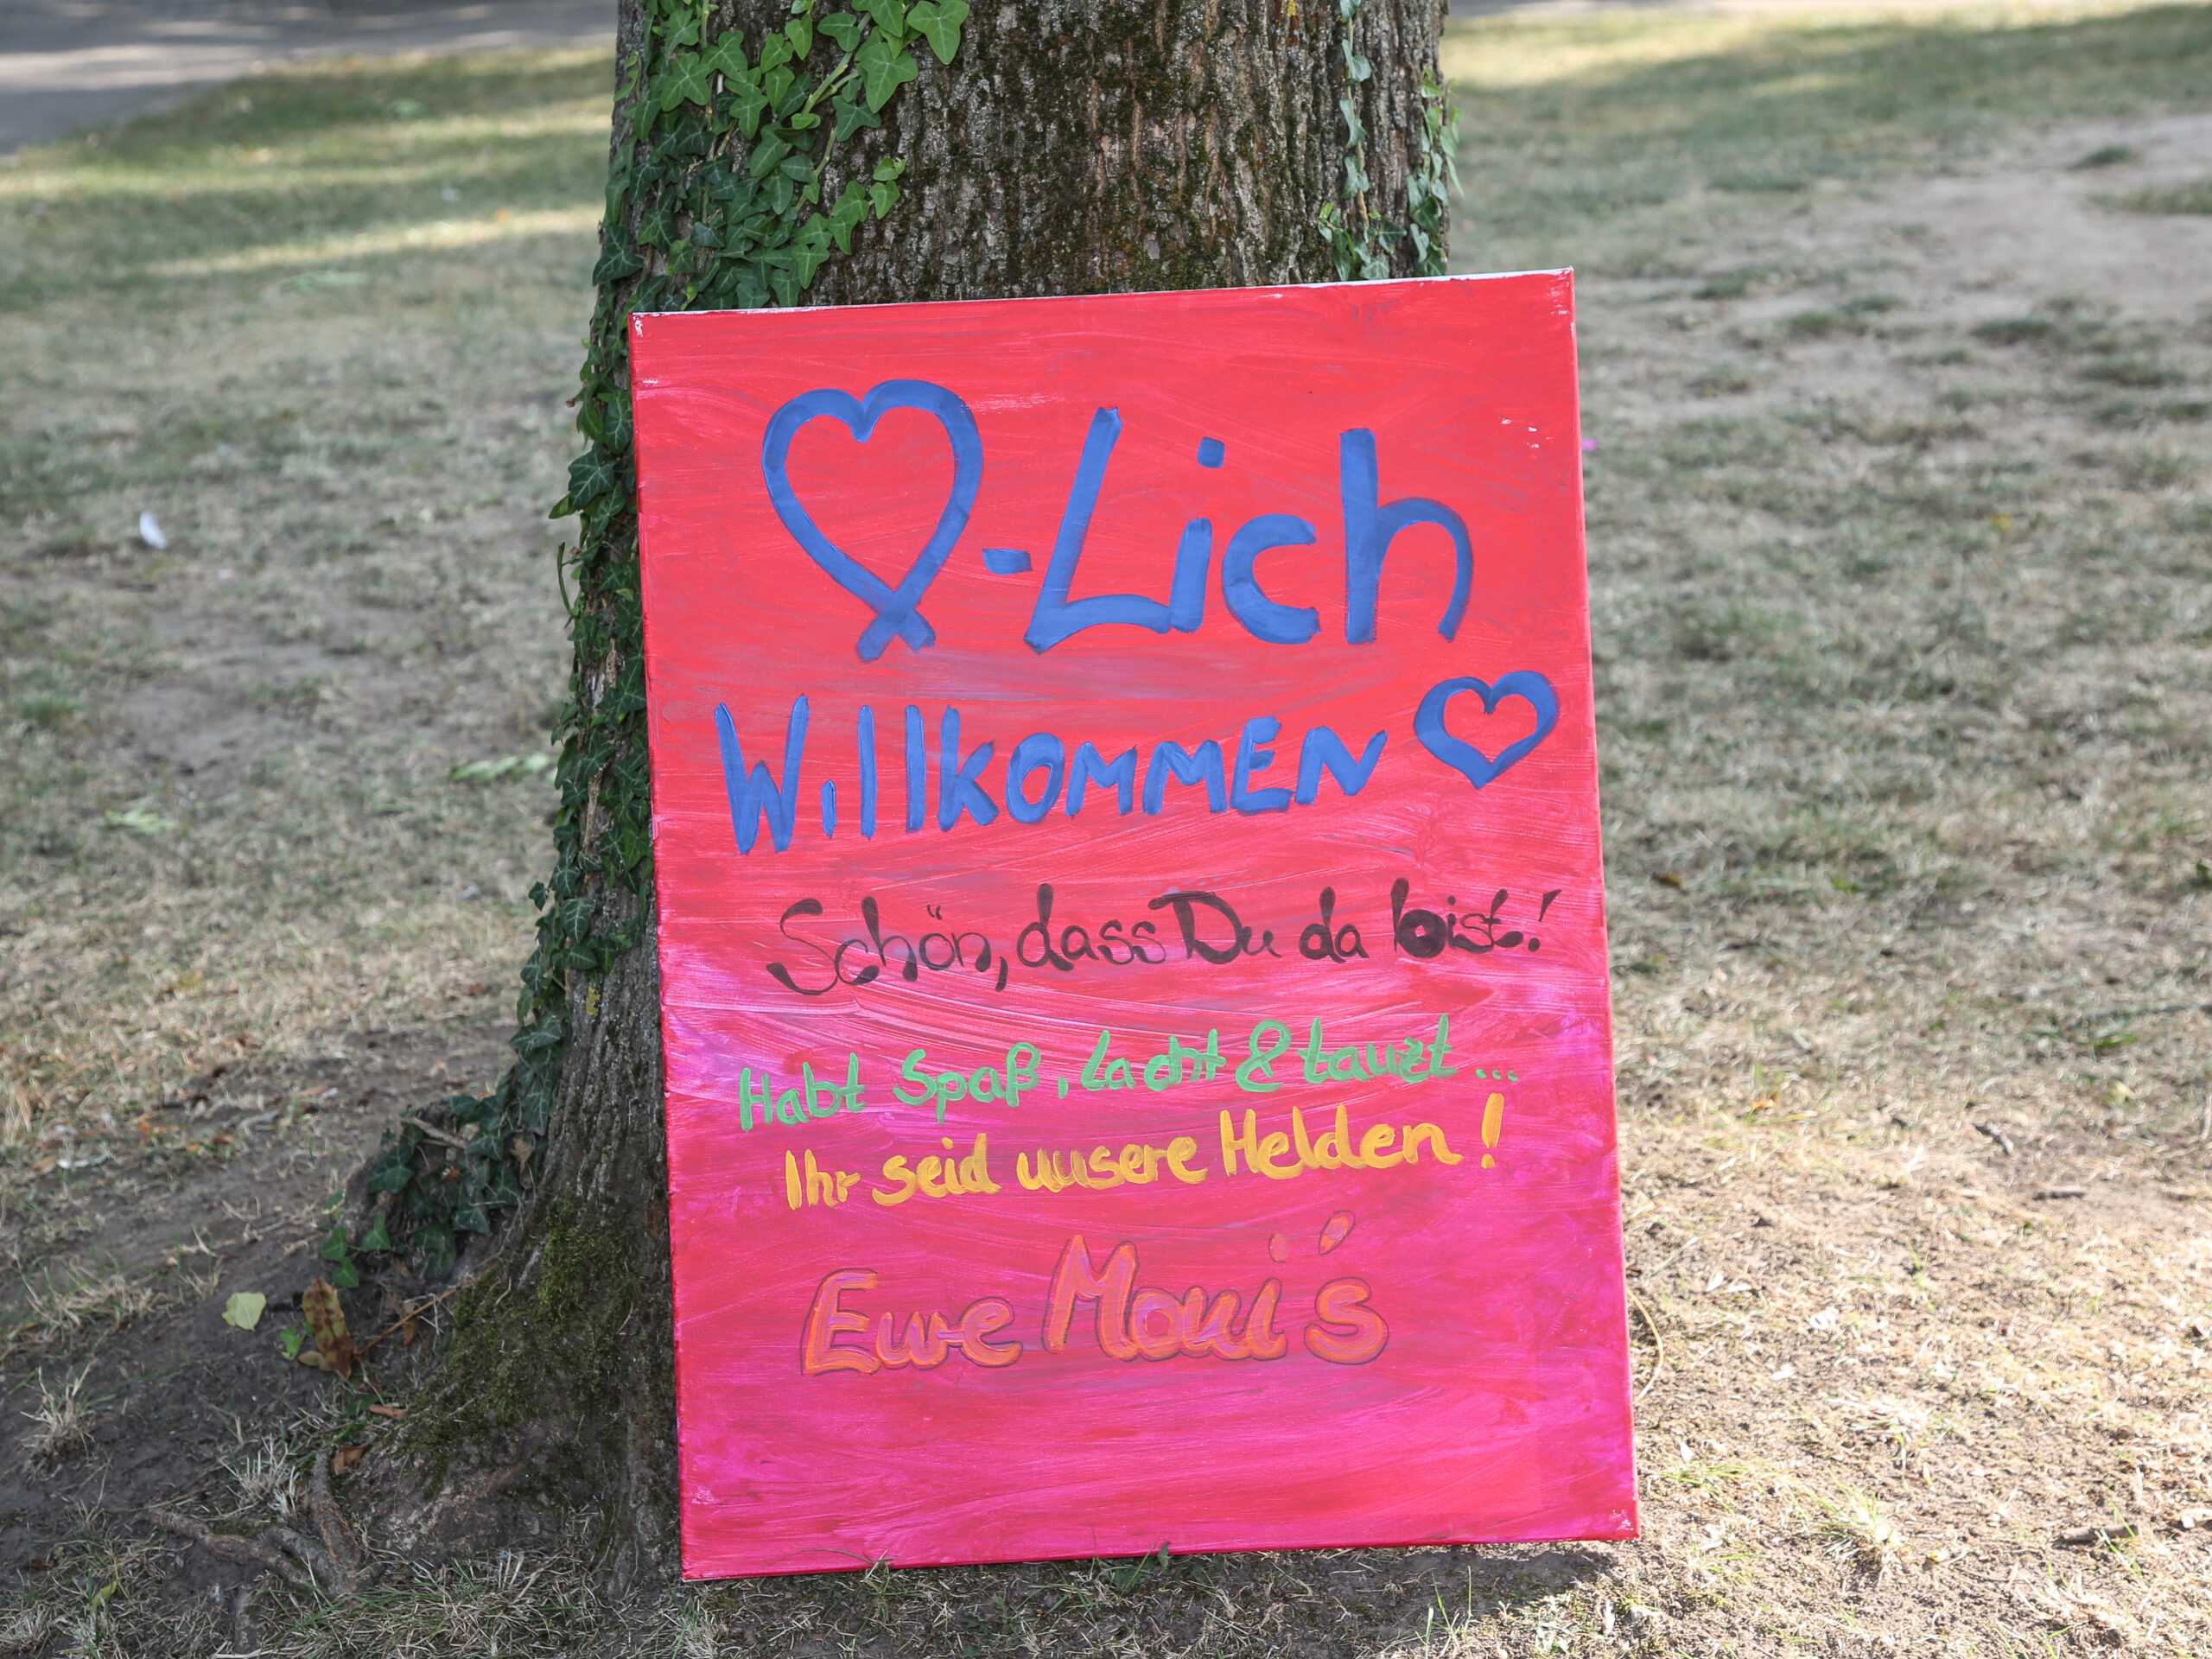 ♡-Lich
Willkommen ♡
Schön, dass Du da bist!
Habt Spaß, Lacht & tanzt...
Ihr seid unsere Helden!
Eure Moni's